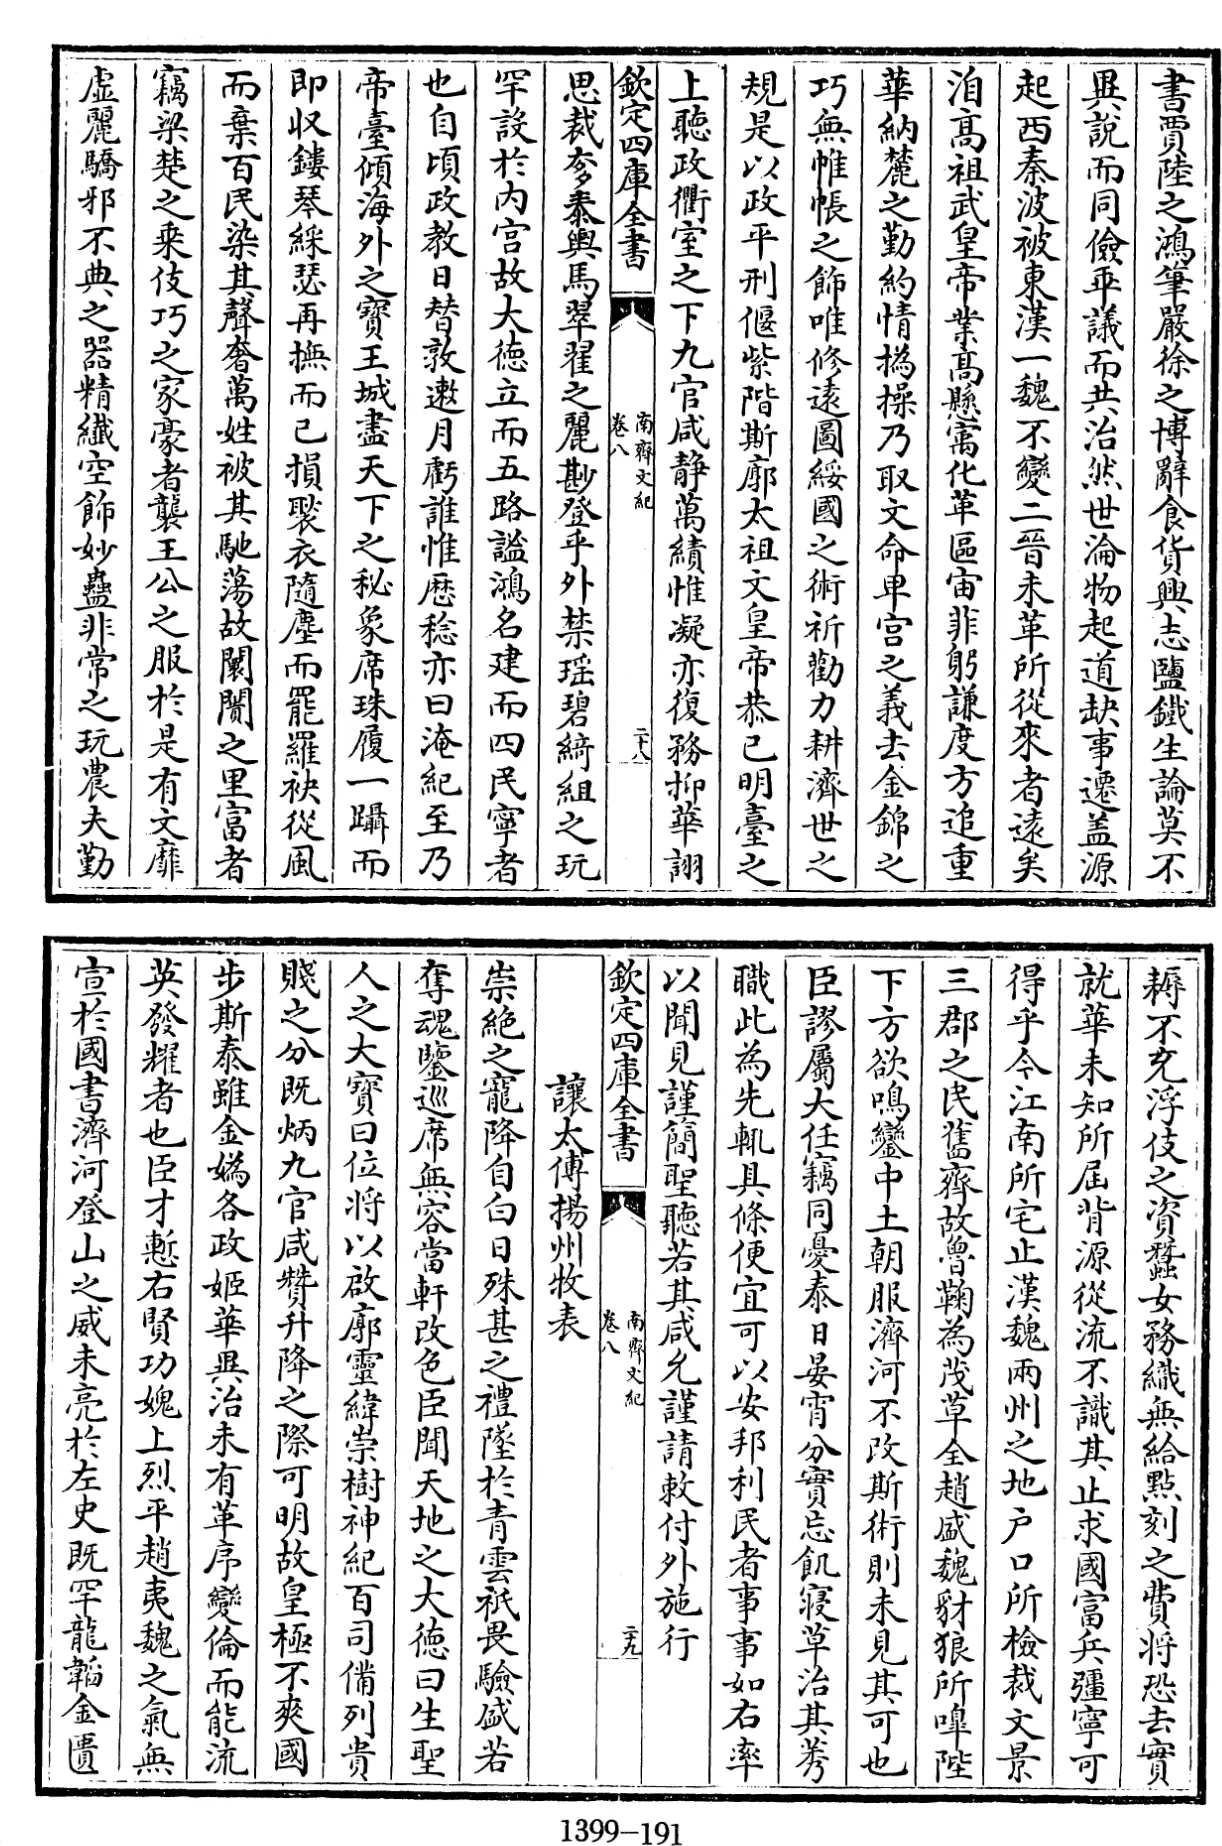 書賈陸之鴻筆嚴徐之博辭食貨興志鹽鐵生論莫不
異說而同儉平議而共治然世淪物起道缺事遷盖源
起西秦波被東漢一魏不變二晉未革所從來者遠矣
洎高祖武皇帝業髙懸寓化革區宙菲躬謙度方追重
華納麓之勤約情撝操乃取文命卑宮之義去金錦之
巧無帷帳之飾唯修遠圖綏國之術祈勸力耕濟世之
規是以政平刑偃紫階斯廓太祖文皇帝恭己明臺之
上聽政衢室之下九官咸静萬績惟凝亦復務抑華詡
欽定四庫全書
南齊文紀
卷八
二十八
思裁奓泰輿馬翠翟之麗尠登乎外禁瑶碧綺組之玩
罕設於内宫故大德立而五路謐鴻名建而四民寧者
也自頃政教日替敦遬月虧誰惟歷稔亦曰淹紀至乃
帝臺傾海外之寶王城盡天下之秘象席珠履一躡而
即收鏤琴綵瑟再撫而已損褧衣隨塵而罷羅袂從風
而棄百民染其聲奢萬姓被其馳蕩故闤闠之里富者
竊梁楚之乗伎巧之家豪者襲王公之服於是有文靡
虚麗驕邪不典之器精纖空飾妙蠱非常之玩農夫勤
耨不充浮伎之資蠶女務織無給點刻之費将恐去實
就華未知所屆背源從流不識其止求國富兵彊寧可
得乎今江南所宅止漢魏兩州之地户口所檢裁文景
三郡之民舊齊故魯鞠為茂草全趙盛魏豺狼所嘷陛
下方欲鳴鑾中土朝服濟河不改斯術則未見其可也
臣謬屬大任竊同憂泰日晏宵分實忘飢寢草治其莠
職此為先輒具條便宜可以安邦利民者事事如右率
以聞見謹簡聖聽若其咸允謹請敕付外施行
欽定四庫全書
南齊文紀
卷八
二十九
讓太傅揚州牧表
崇絶之寵降自白日殊甚之禮墜於青雲祇畏驗盛若
奪魂鑒巡席無容當軒改色臣聞天地之大德曰生聖
人之大寶曰位将以啟廓靈緯崇樹神紀百司備列貴
賤之分既炳九官咸贊升降之際可明故皇極不爽國
步斯泰雖金媯各政姬華異治未有革序變倫而能流
英發耀者也臣才慙右賢功媿上烈平趙夷魏之氣無
宣於國書濟河登山之威未亮於左史既罕龍韜金匱
1399-191